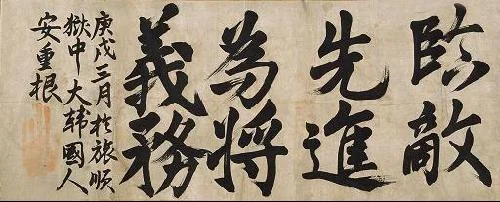 臨敵
先進
為将
義務
庚戌三月於旅順
獄中 大韓國人
安重根